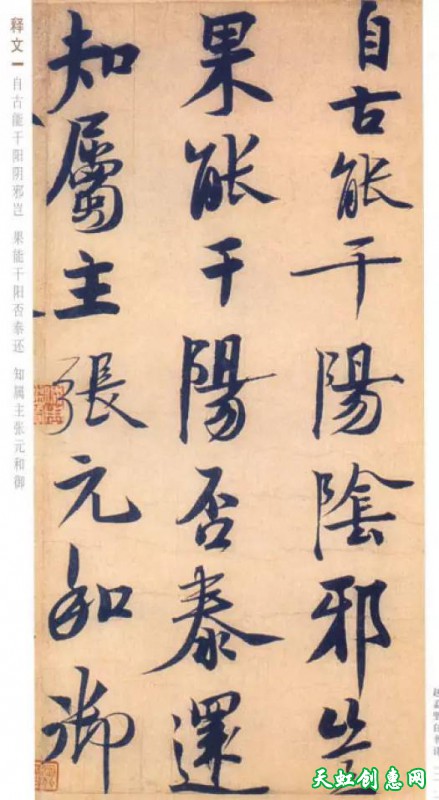 自古能干陽陰邪豈
果能干陽否泰還
知屬主張元和御
释文一 自古能干阳阴邪岂 果能干阳否泰还 知属主张元和御
天虹创惠网